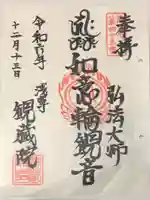 奉拝
弘法大師
如意輪観音
令和六年
十二月十三日
浅草
観蔵院